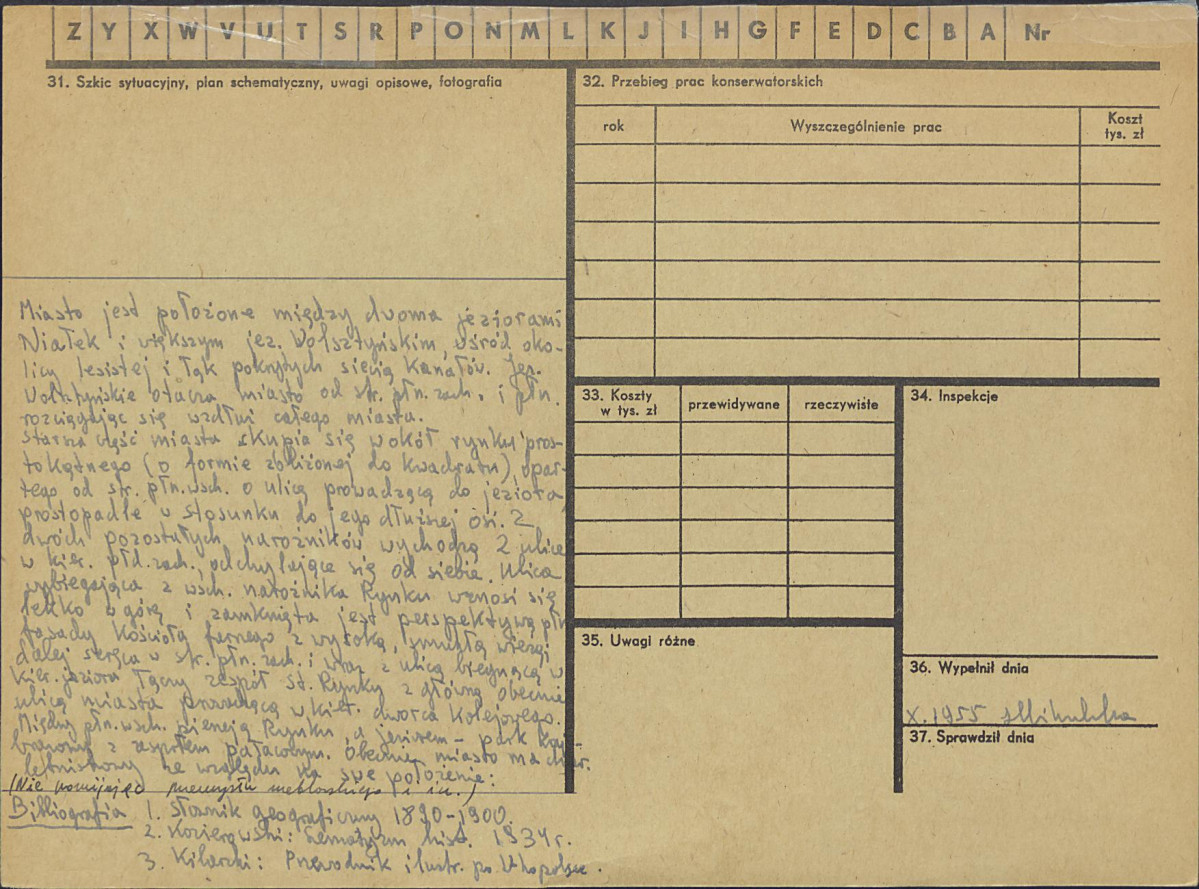 Z Y X W V U T S R P O N M L K J I H G F E D C B A Nr
31. Szkic sytuacyjny, plan schematyczny, uwagi opisowe, fotografia
Miasto jest położone między dwoma jeziorami
Niałek i większym jez. Wolsztyńskim, wśród oko-
licy lesistej i łąk pokrytych siecią kanałów. Jez.
Wolsztyńskie otacza miasto od str. płn. zach. i płn.
rozciągając się wzdłuż całego miasta.
Starsza część miasta skupia się wokół rynku pros-
tokątnego (o formie zbliżonej do kwadratu) opar-
tego od str. płn. wsch. o ulicę prowadzącą do jeziora
prostopadle w stosunku do jego dłuższej osi. Z
dwóch pozostałych narożników wychodzą 2 ulice
w kier. płd. zach., odchylające się od siebie. Ulica
wybiegająca z wsch. narożnika Rynku wznosi się
lekko w górę i zamknięta jest perspektywą płn
fasady kościoła farnego z wysoką, smukłą wieżą
dalej skręca w str. płn. zach. i wraz z ulicą biegnącą w
kier. jeziora łączy zespół St. Rynku z główną obecnie
ulicą miasta prowadzącą w kier. dworca kolejowego.
Między płn. wsch. pierzeją Rynku a jeziorem – park kraj-
brazowy z zespołem pałacowym. Obecnie miasto ma char.
letniskowy ze względu na swe położenie:
(Nie pomijając przemysłu meblarskiego i in.)
Bibliografia 1. Słownik geograficzny 1890-1900.
2. Kozierowski: Szematyzm hist. 1934 r.
3. Kilarski: Przewodnik ilustr. po Wlkopolsce.
32. Przebieg prac konserwatorskich
rok Wyszczególnienie prac Koszt
tys. zł
33. Koszty
w tys. zł przewidywane rzeczywiste
34. Inspekcje
35. Uwagi różne
36. Wypełnił dnia
X.1955
37. Sprawdził dnia